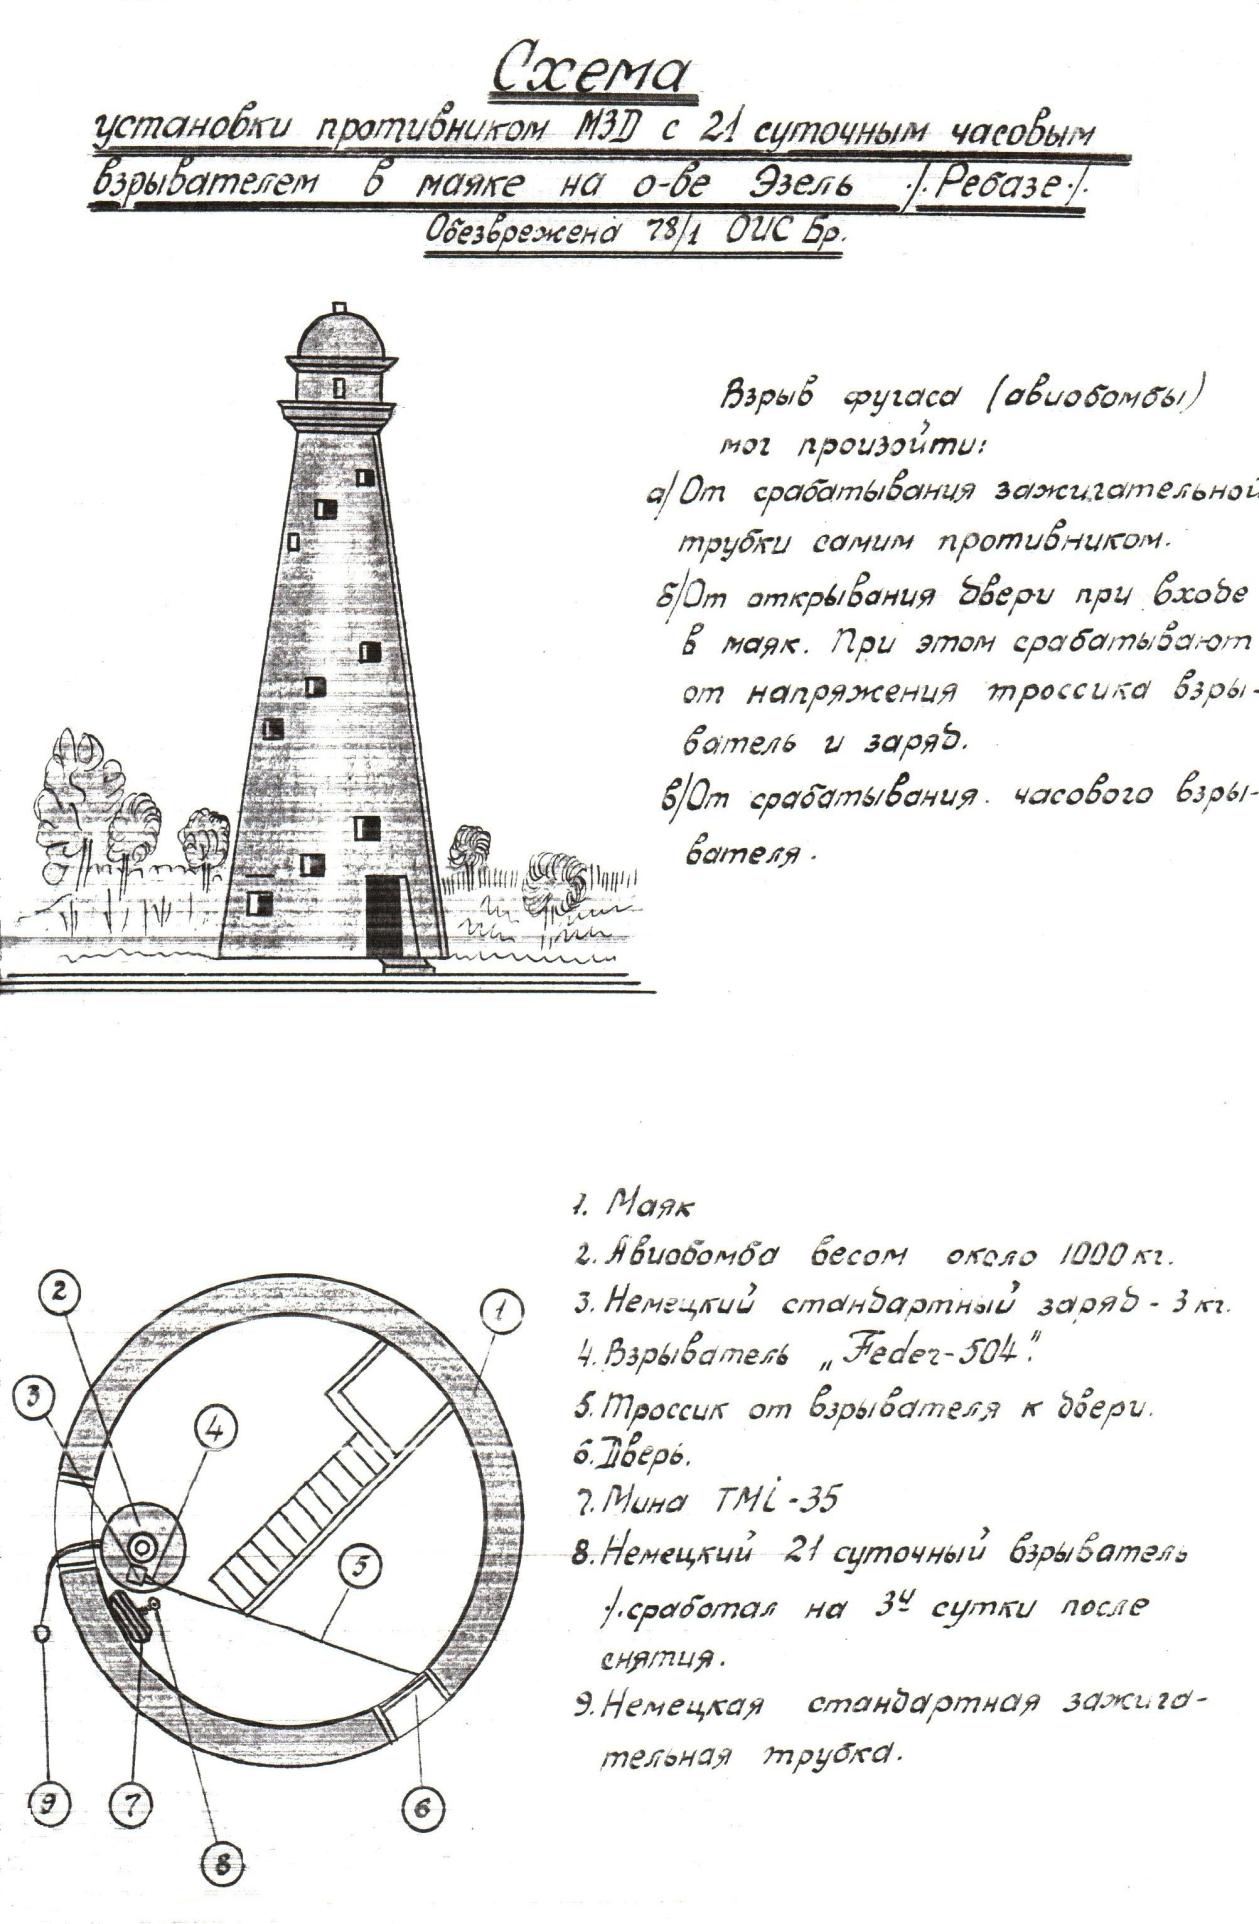 Схема
установки противником МЗД с 21 суточным часовым
взрывателем в маяке на о-ве Эзель /.Ребазе./.
Обезврежена 78/1 ОИС Бр.
Взрыв фугаса (авиобомбы)
мог произойти:
а/От срабатывания зажигательной
трубки самим противником.
б/От открывания двери при входе
в маяк. При этом срабатывают
от напряжения троссика взры-
ватель и заряд.
в/От срабатывания часового взры-
вателя.
1. Маяк
2. Авиобомба весом около 1000 кг.
3. Немецкий стандартный заряд - 3 кг.
4. Взрыватель „Feder-504".
5. Троссик от взрывателя к двери.
6. Дверь.
7. Мина TMi-35
8. Немецкий 21 суточный взрыватель
/.сработал на 3й сутки после
снятия.
9. Немецкая стандартная зажига-
тельная трубка.
2
1
3
4
5
9
7
6
8